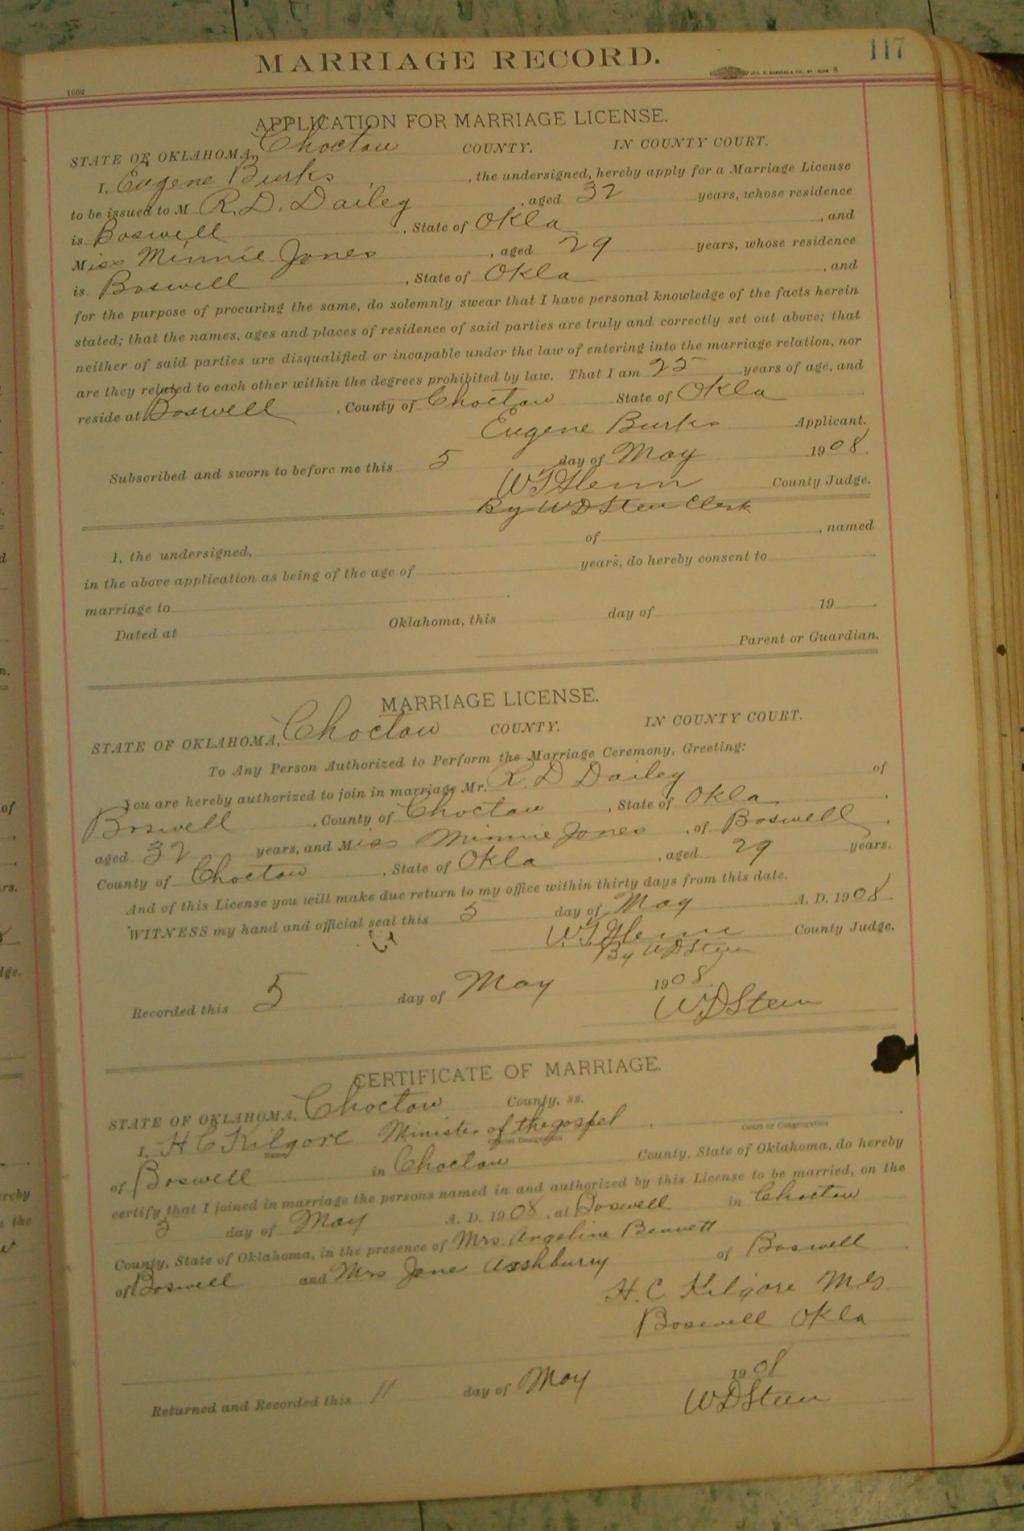 MARRIAGE RECORD.
117
1602
APPLICATION FOR MARRIAGE LICENSE.
STATE OF OKLAHOMA, Choctaw COUNTY. IN COUNTY COURT.
I, Eugene Burks, the undersigned, hereby apply for a Marriage License
to be issued to M R. D. Dailey, aged 32 years, whose residence
is Boswell, State of Okla, and
Miss Minnie Jones, aged 29 years, whose residence
is Boswell, State of Okla, and
for the purpose of procuring the same, do solemnly swear that I have personal knowledge of the facts herein
stated; that the names, ages and places of residence of said parties are truly and correctly set out above; that
neither of said parties are disqualified or incapable under the law of entering into the marriage relation, nor
are they related to each other within the degrees prohibited by law. That I am 25 years of age, and
reside at Boswell, County of Choctaw State of Okla
Eugene Burks Applicant.
Subscribed and sworn to before me this 5 day of May 1908.
W T Glenn County Judge.
By W D Steen Clerk
I, the undersigned, of , named
in the above application as being of the age of years, do hereby consent to
marriage to
Dated at Oklahoma, this day of 19
Parent or Guardian.
MARRIAGE LICENSE.
STATE OF OKLAHOMA, Choctaw COUNTY. IN COUNTY COURT.
To Any Person Authorized to Perform the Marriage Ceremony, Greeting:
You are hereby authorized to join in marriage Mr. R. D Dailey of
Boswell, County of Choctaw, State of Okla,
aged 32 years, and Miss Minnie Jones, of Boswell,
County of Choctaw, State of Okla, aged 29 years.
And of this License you will make due return to my office within thirty days from this date.
WITNESS my hand and official seal this 5 day of May A. D. 1908
W T Glenn County Judge.
By W D Steen
Recorded this 5 day of May 1908
W D Steen
CERTIFICATE OF MARRIAGE.
STATE OF OKLAHOMA, Choctaw County, ss.
I, H C Kilgore Minister of the gospel
Name Official Designation Court or Congregation
of Boswell in Choctaw County, State of Oklahoma, do hereby
certify that I joined in marriage the persons named in and authorized by this License to be married, on the
day of May A. D. 1908, at Boswell in Choctaw
County, State of Oklahoma, in the presence of Mrs. Angeline Bennett
of Boswell and Mrs Jane Asshburry of Boswell
H. C Kilgore M G
Boswell Okla
Returned and Recorded this 11 day of May 1908
W D Steen